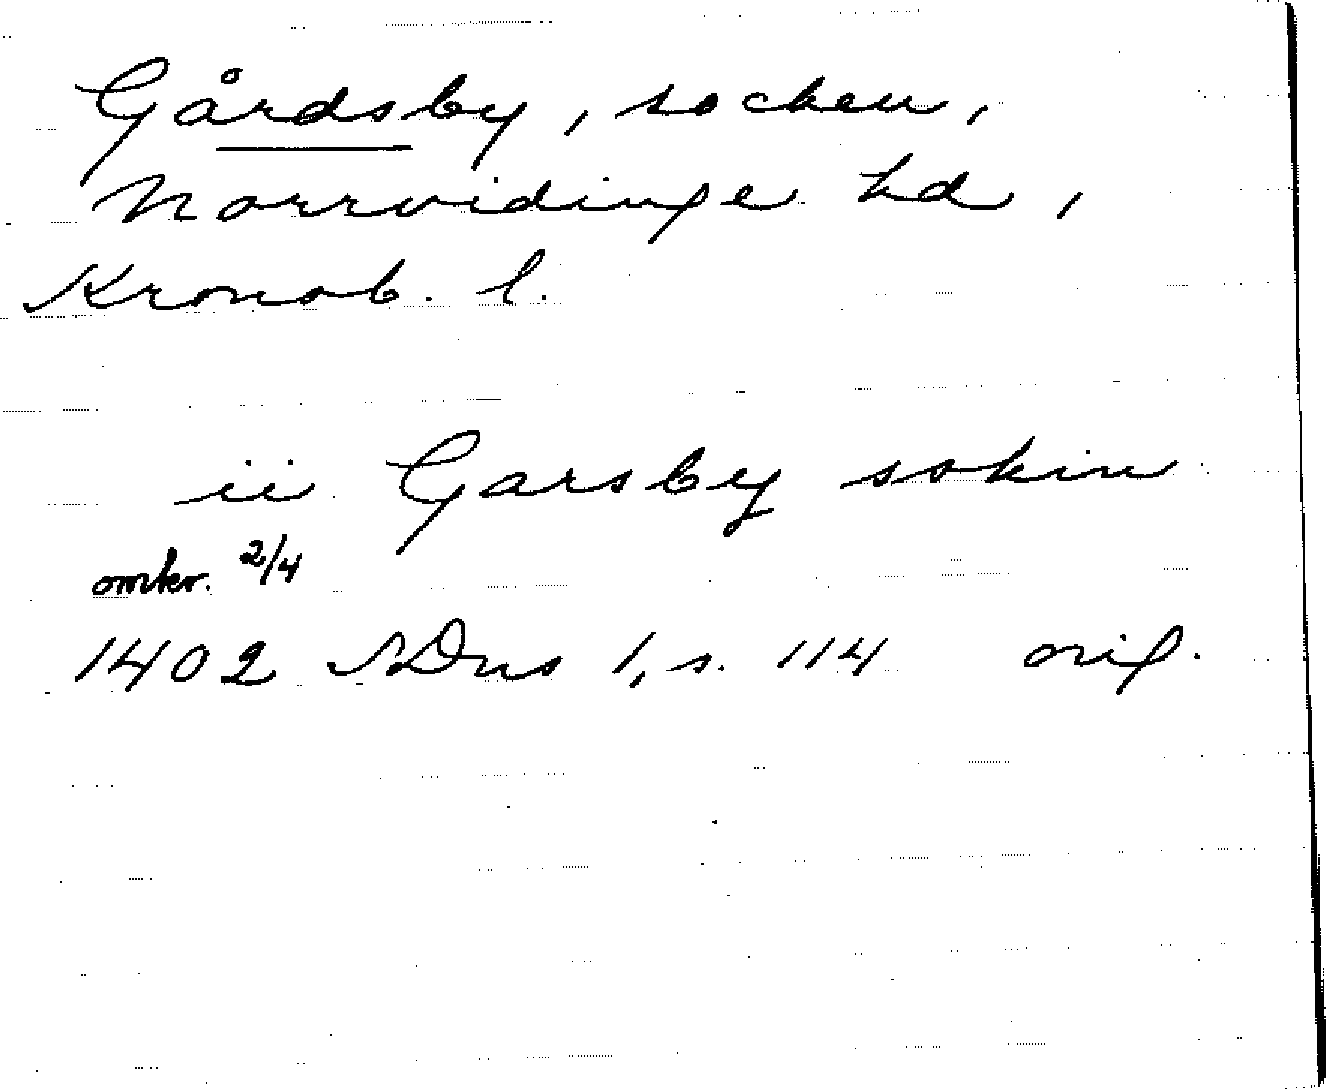 Gårdsby, socken,
Norrvidinge hd,
Kronob. l.
ii Garsby sokin
omkr. 2/4
1402 SDns 1, s. 114 orig.